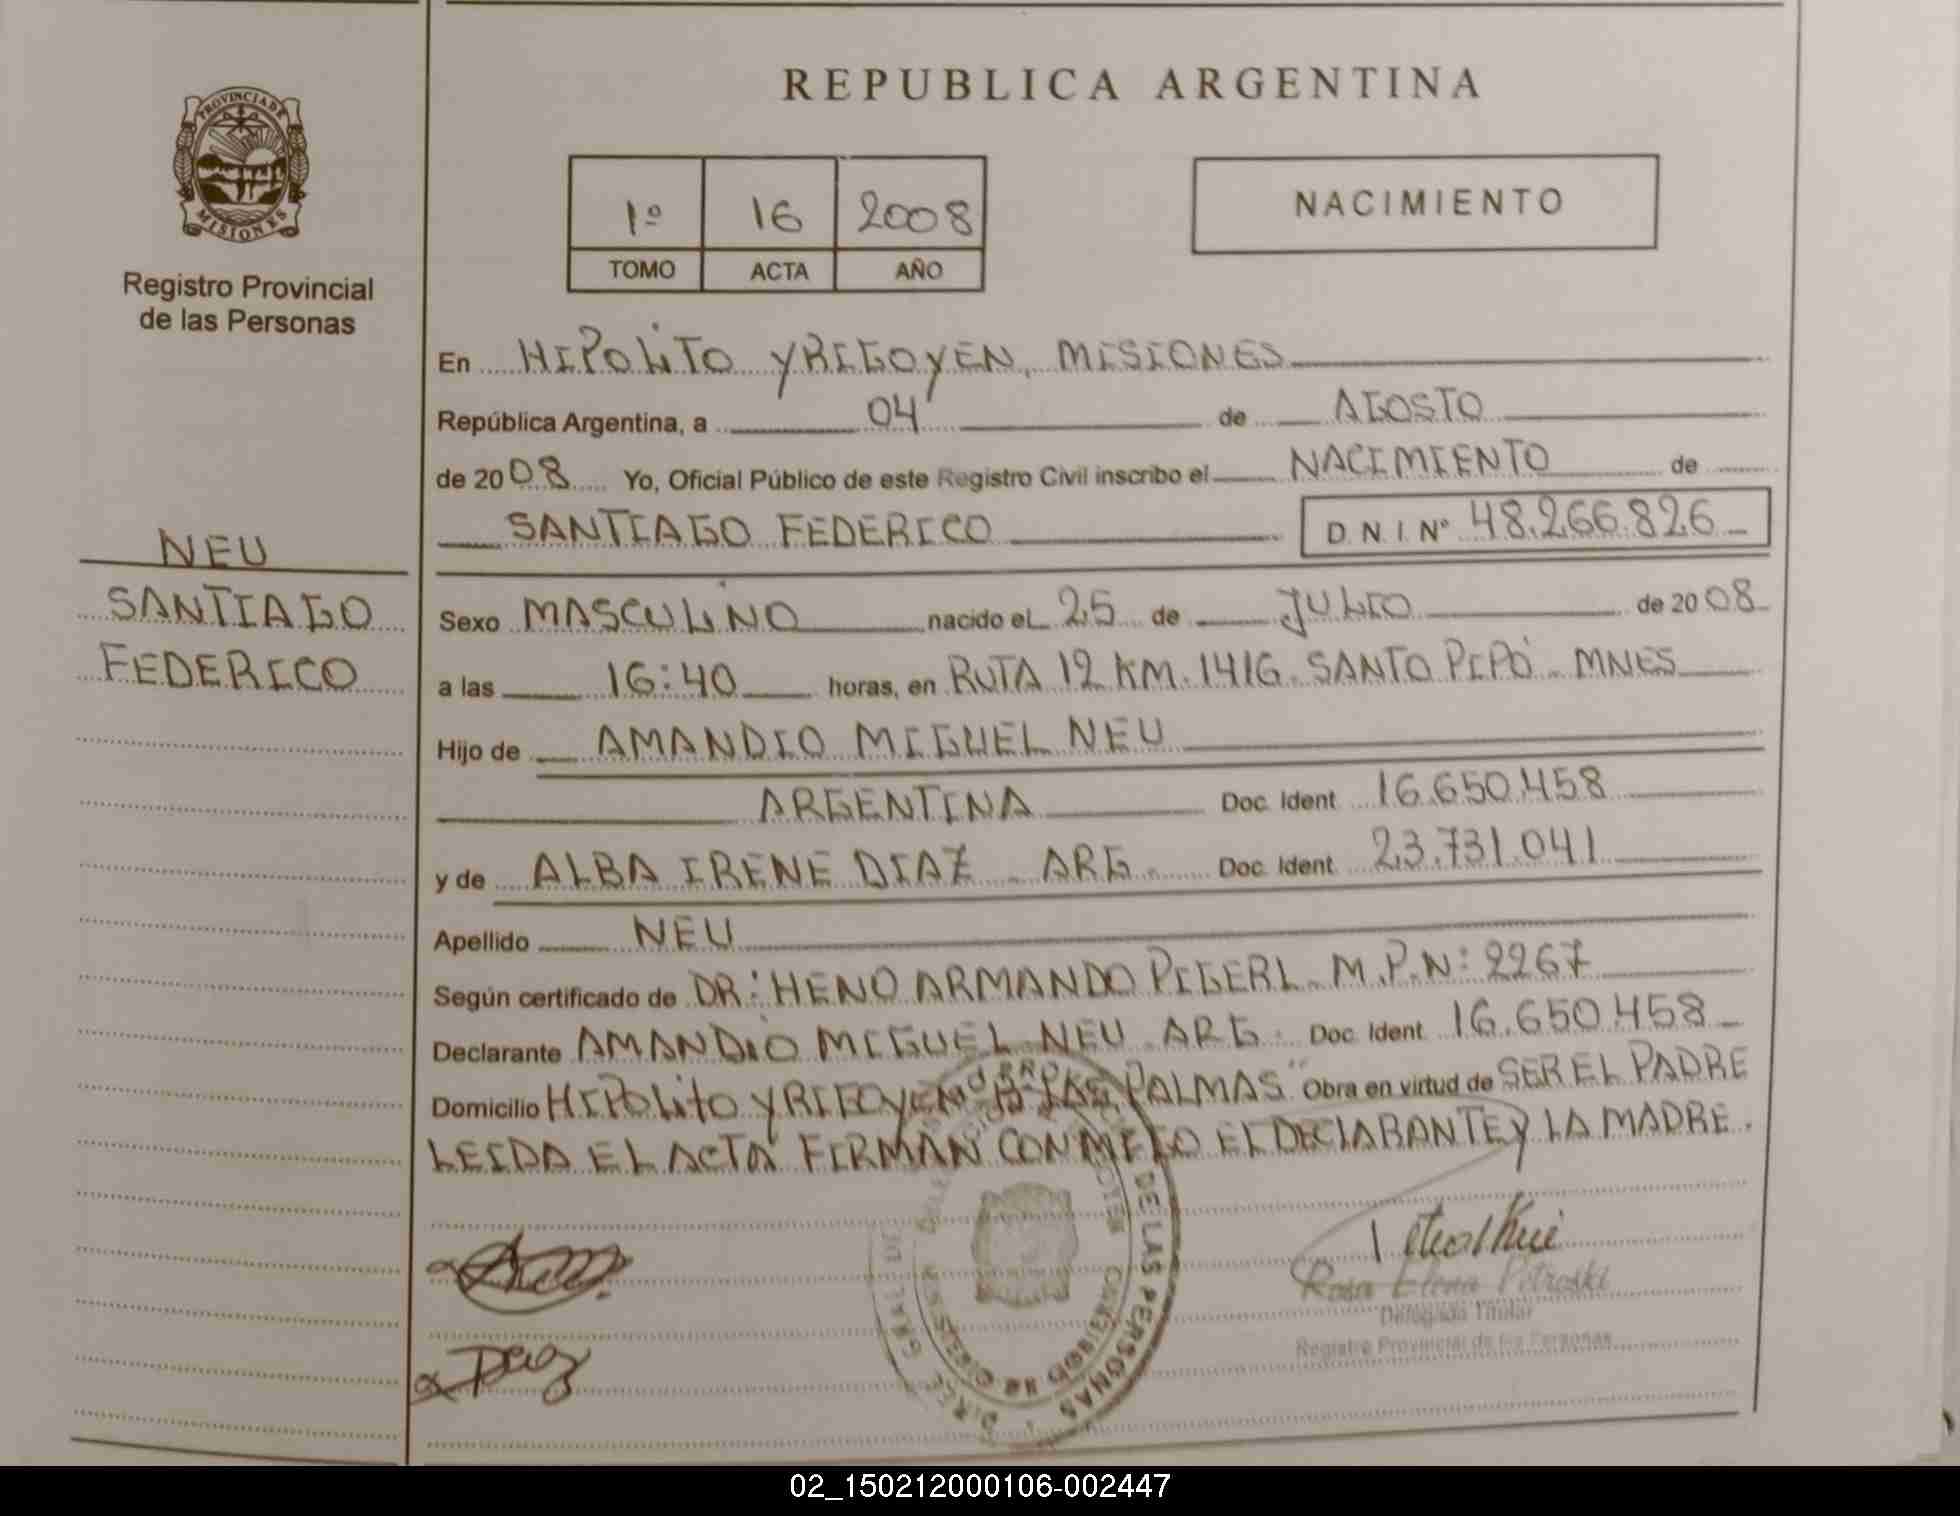 REPUBLICA ARGENTINA
PROVINCIA DE
MISIONES
Registro Provincial
de las Personas
1º 16 2008
TOMO ACTA AÑO
NACIMIENTO
En HIPOLITO YRIGOYEN, MISIONES
República Argentina, a 04 de AGOSTO
de 2008 Yo, Oficial Público de este Registro Civil inscribo el NACIMIENTO de
SANTIAGO FEDERICO D N I Nº 48.266.826
NEU
SANTIAGO
FEDERICO
Sexo MASCULINO nacido el 25 de JULIO de 2008
a las 16:40 horas, en RUTA 12 KM. 1416. SANTO PIPÓ - MNES
Hijo de AMANDIO MIGUEL NEU
ARGENTINA Doc. Ident 16.650.458
y de ALBA IRENE DIAZ - ARG. Doc. Ident 23.731.041
Apellido NEU
Según certificado de DR: HENO ARMANDO PIGERL. M.P.N: 2267
Declarante AMANDIO MIGUEL NEU ARG. Doc. Ident 16.650.458
Domicilio HIPOLITO YRIGOYEN PALMAS" Obra en virtud de SER EL PADRE
LEIDA EL ACTA FIRMAN CONMIGO EL DECLARANTE Y LA MADRE.
DE LAS PERSONAS
Diaz
Rosa Elena Petroski
Delegada Titular
Registro Provincial de las Personas
02_150212000106-002447